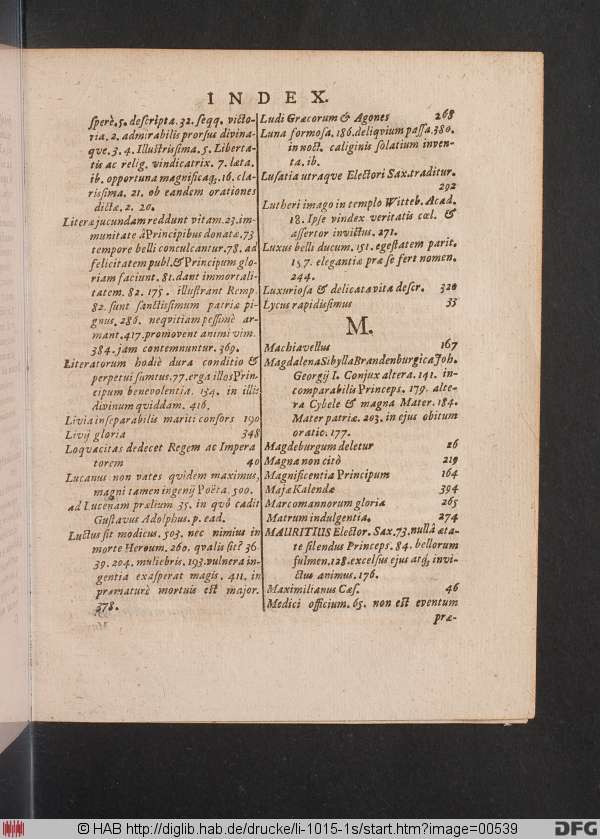 INDEX.
sperè. 5. descripta. 32. seqq. victo-
ria. 2. admirabilis prorsus divina-
que. 3. 4. Illustrissima. 5. Liberta-
tis ac relig. vindicatrix. 7. læta.
ib. opportuna magnificaq;. 16. cla-
rissima. 21. ob eandem orationes
dictæ. 2. 20.
Literæ jucundam reddunt vitam. 23. im-
munitate à Principibus donatæ. 73
tempore belli conculcantur. 78. ad
felicitatem publ. & Principum glo-
riam faciunt. 81. dant immortali-
tatem. 82. 175. illustrant Remp.
82. sunt sanctissimum patriæ pi-
gnus. 286. neqvitiam pessimè ar-
mant. 417. promovent animi vim.
384. jam contemnuntur. 369.
Literatorum hodiè dura conditio &
perpetui sumtus. 77. erga illos Prin-
cipum benevolentia. 134. in illis
divinum quiddam. 416.
Livia inseparabilis mariti consors 190
Livij gloria 348
Loqvacitas dedecet Regem ac Impera
torem 40
Lucanus non vates qvidem maximus,
magni tamen ingenij Poëta. 500.
ad Lucenam prælium 35. in qvô cadit
Gustavus Adolphus. p. ead.
Luctus sit modicus. 503. nec nimius in
morte Heroum. 260. qvalis sit? 36
39. 204. muliebris. 193. vulnera in-
gentia exasperat magis. 411. in
præmaturè mortuis est major.
278.
Ludi Græcorum & Agones 268
Luna formosa. 186. deliqvium passa. 380.
in noct. caliginis solatium inven-
ta. ib.
Lusatia utraque Electori Sax. traditur.
292
Lutheri imago in templo Witteb. Acad.
18. Ipse vindex veritatis cœl. &
assertor invictus. 271.
Luxus belli ducum. 151. egestatem parit.
157. elegantiæ præ se fert nomen.
244.
Luxuriosa & delicata vita descr. 320
Lycus rapidissimus 33
M.
Machiavellus 167
Magdalena Sibylla Brandenburgica Joh.
Georgij I. Conjux altera. 141. in-
comparabilis Princeps. 179. alte-
ra Cybele & magna Mater. 184.
Mater patriæ. 203. in ejus obitum
oratio. 177.
Magdeburgum deletur 26
Magna non citò 219
Magnificentia Principum 164
Majæ Kalendæ 394
Marcomannorum gloria 265
Matrum indulgentia. 274
MAURITIUS Elector. Sax. 73. nullâ æta-
te silendus Princeps. 84. bellorum
fulmen. 128. excelsus ejus atq; invi-
ctus animus. 176.
Maximilianus Cæs. 46
Medici officium. 65. non est eventum
præ-
© HAB http://diglib.hab.de/drucke/li-1015-1s/start.htm?image=00539
DFG